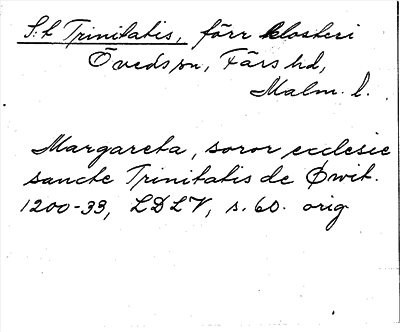 S:t Trinitatis, förr klosteri
Övedsn, Färs hd,
Malm. l.
Margareta, soror ecclesie
sancte Trinitatis de Øwit.
1200-33, LDLV, s. 60. orig